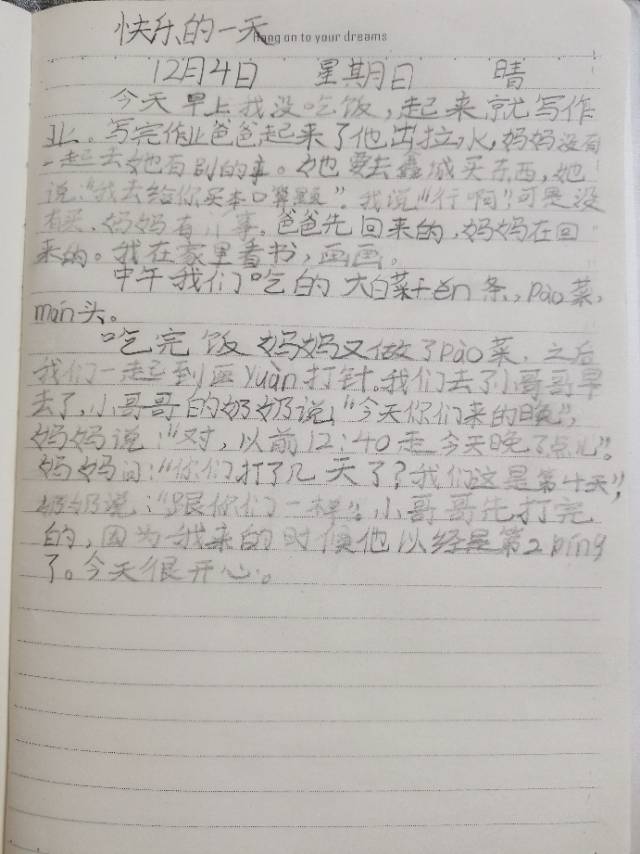 快乐的一天
Hang on to your dreams
12月4日 星期日 晴
今天早上我没吃饭,起来就写作
业。写完作业爸爸起来了他出拉水,妈妈没有
一起去她有别的事。她也要去鑫城买东西,她
说:“我去给你买本口算题”。我说“行啊”可是没
有买,妈妈有事。爸爸先回来的,妈妈在回
来的。我在家里看书,画画。
中午我们吃的大白菜fěn条,pào菜,
mán头。
吃完饭妈妈又做了pào菜,之后
我们一起到医yuàn打针。我们去了小哥哥早
去了,小哥哥的奶奶说:“今天你们来的晚”,
妈妈说:“对,以前12:40走今天晚了点儿”。
妈妈问:“你们打了几天了?我们这是第十天”,
奶奶说:“跟你们一样”。小哥哥先打完
的,因为我来的时候他以经是第2píng
了。今天很开心。